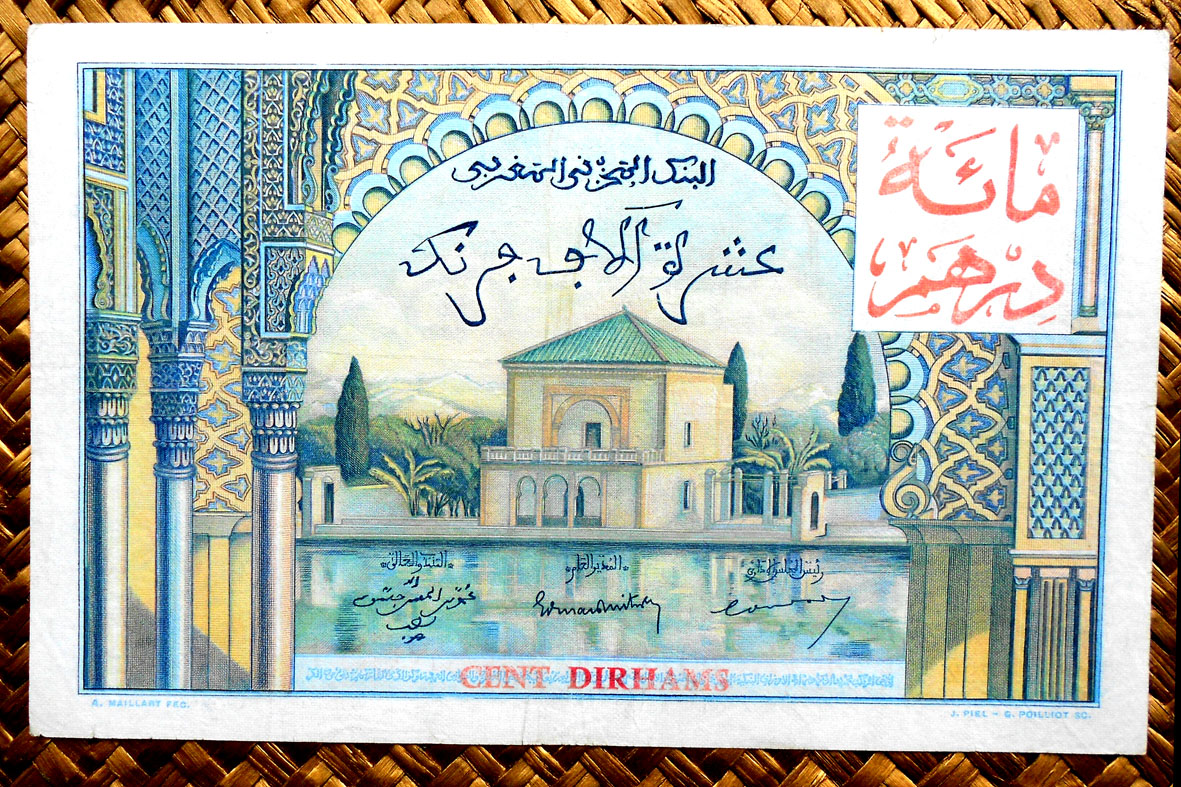 البنك المخزني المغربي
عشرة آلاف فرنك
مائة
درهم
المدير العام
CENT DIRHAMS
A. MAILLART FEC.
J. PIEL – G. POILLIOT SC.